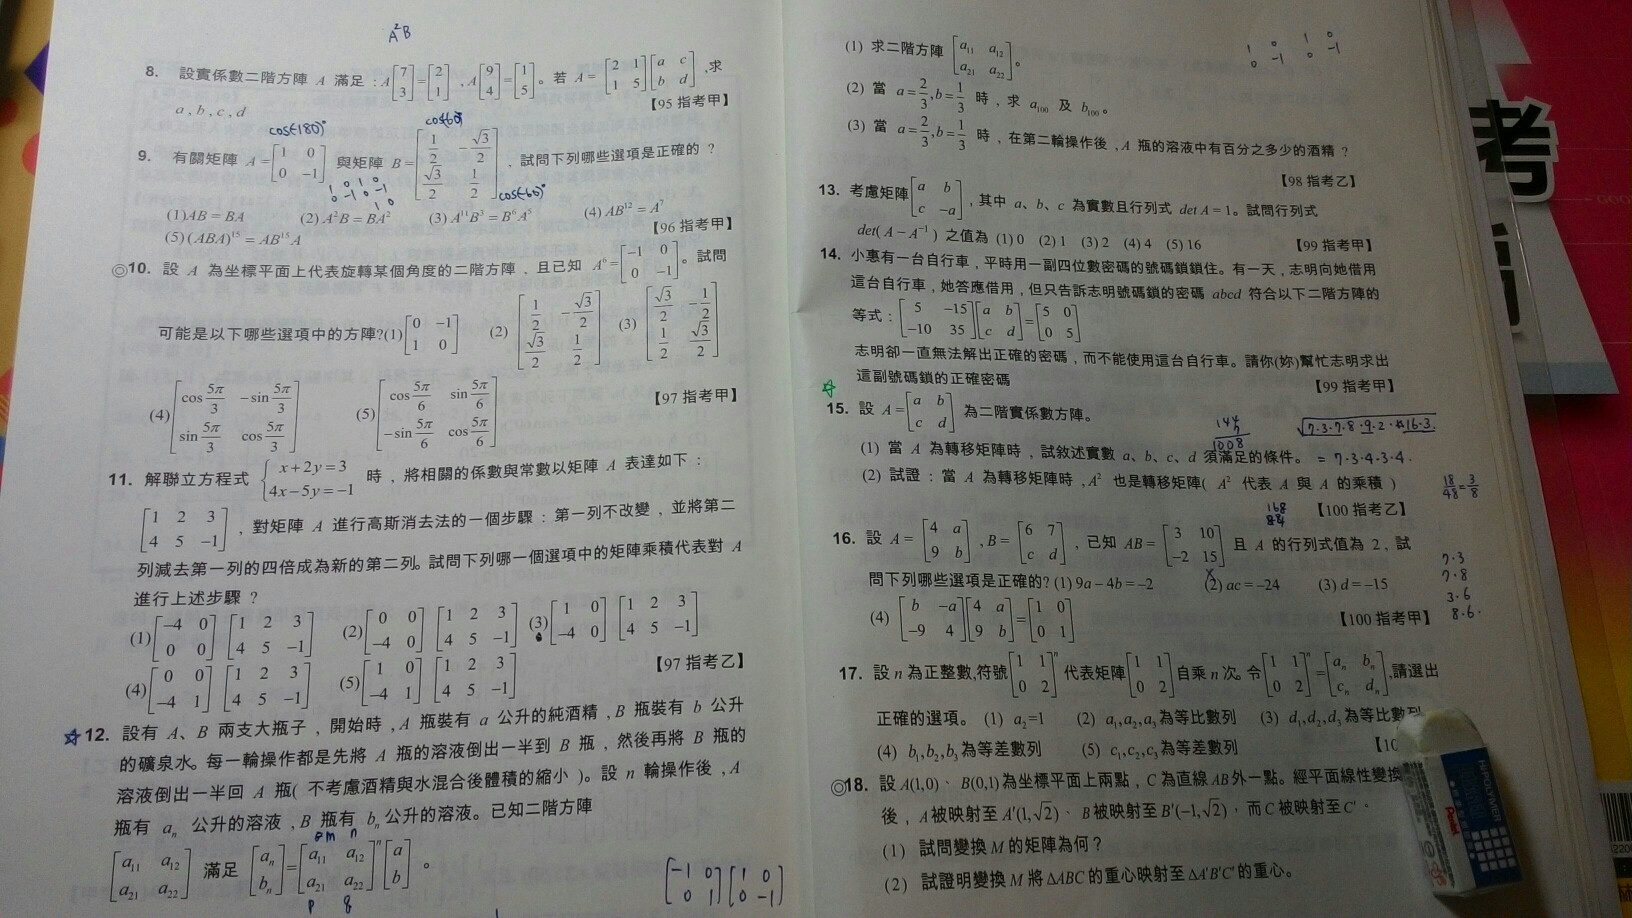 A²B
8. 設實係數二階方陣 A 滿足：A[7 3]=[2 1]，A[9 4]=[1 5]。若 A=[2 1; 1 5][a c; b d]，求
a，b，c，d 【95 指考甲】
cos(-180)° cos(60)°
9. 有關矩陣 A=[1 0; 0 -1] 與矩陣 B=[1/2 -√3/2; √3/2 1/2]，試問下列哪些選項是正確的？
cos(-60)°
1 0 1 0
0 -1 0 -1
1 0
(1) AB = BA (2) A²B = BA² (3) A¹¹B³ = B⁶A⁵ (4) AB¹² = A⁷
(5) (ABA)¹⁵ = AB¹⁵A 【96 指考甲】
◎10. 設 A 為坐標平面上代表旋轉某個角度的二階方陣，且已知 A⁶=[-1 0; 0 -1]。試問
可能是以下哪些選項中的方陣?(1)[0 -1; 1 0] (2)[1/2 -√3/2; √3/2 1/2] (3)[√3/2 -1/2; 1/2 √3/2]
(4)[cos5π/3 -sin5π/3; sin5π/3 cos5π/3] (5)[cos5π/6 sin5π/6; -sin5π/6 cos5π/6] 【97 指考甲】
11. 解聯立方程式 {x+2y=3; 4x-5y=-1 時，將相關的係數與常數以矩陣 A 表達如下：
[1 2 3; 4 5 -1]，對矩陣 A 進行高斯消去法的一個步驟：第一列不改變，並將第二
列減去第一列的四倍成為新的第二列。試問下列哪一個選項中的矩陣乘積代表對 A
進行上述步驟？
(1)[-4 0; 0 0][1 2 3; 4 5 -1] (2)[0 0; -4 0][1 2 3; 4 5 -1] (3)[1 0; -4 0][1 2 3; 4 5 -1]
(4)[0 0; -4 1][1 2 3; 4 5 -1] (5)[1 0; -4 1][1 2 3; 4 5 -1] 【97 指考乙】
☆12. 設有 A、B 兩支大瓶子，開始時，A 瓶裝有 a 公升的純酒精，B 瓶裝有 b 公升
的礦泉水。每一輪操作都是先將 A 瓶的溶液倒出一半到 B 瓶，然後再將 B 瓶的
溶液倒出一半回 A 瓶(不考慮酒精與水混合後體積的縮小)。設 n 輪操作後，A
瓶有 aₙ 公升的溶液，B 瓶有 bₙ 公升的溶液。已知二階方陣
m n
[a₁₁ a₁₂; a₂₁ a₂₂] 滿足 [aₙ bₙ]=[a₁₁ a₁₂; a₂₁ a₂₂]ⁿ[a b]。
p q
[-1 0; 0 1][1 0; 0 -1]
(1) 求二階方陣 [a₁₁ a₁₂; a₂₁ a₂₂]。
1 0 1 0
0 -1 0 -1
(2) 當 a=2/3，b=1/3 時，求 a₁₀₀ 及 b₁₀₀。
(3) 當 a=2/3，b=1/3 時，在第二輪操作後，A 瓶的溶液中有百分之多少的酒精？
【98 指考乙】
13. 考慮矩陣[a b; c -a]，其中 a、b、c 為實數且行列式 det A = 1。試問行列式
det(A − A⁻¹) 之值為 (1) 0 (2) 1 (3) 2 (4) 4 (5) 16 【99 指考甲】
14. 小惠有一台自行車，平時用一副四位數密碼的號碼鎖鎖住。有一天，志明向她借用
這台自行車，她答應借用，但只告訴志明號碼鎖的密碼 abcd 符合以下二階方陣的
等式：[5 -15; -10 35][a b; c d]=[5 0; 0 5]
志明卻一直無法解出正確的密碼，而不能使用這台自行車。請你(妳)幫忙志明求出
這副號碼鎖的正確密碼 【99 指考甲】
☆15. 設 A=[a b; c d] 為二階實係數方陣。
144
1008
√7·3·7·8·9·2·16·3
(1) 當 A 為轉移矩陣時，試敘述實數 a、b、c、d 須滿足的條件。 = 7·3·4·3·4.
(2) 試證：當 A 為轉移矩陣時，A² 也是轉移矩陣(A² 代表 A 與 A 的乘積) 18/48=3/8
168
84
【100 指考乙】
16. 設 A=[4 a; 9 b]，B=[6 7; c d]，已知 AB=[3 10; -2 15] 且 A 的行列式值為 2，試
問下列哪些選項是正確的? (1) 9a − 4b = −2 (2) ac = −24 (3) d = −15
(4) [b -a; -9 4][4 a; 9 b]=[1 0; 0 1] 【100 指考甲】
7·3
7·8
3·6
8·6.
17. 設 n 為正整數,符號[1 1; 0 2]ⁿ 代表矩陣[1 1; 0 2]自乘 n 次。令[1 1; 0 2]ⁿ=[aₙ bₙ; cₙ dₙ],請選出
正確的選項。 (1) a₂=1 (2) a₁,a₂,a₃為等比數列 (3) d₁,d₂,d₃為等比數列
(4) b₁,b₂,b₃為等差數列 (5) c₁,c₂,c₃為等差數列 【10
◎18. 設 A(1,0)、B(0,1)為坐標平面上兩點，C 為直線 AB外一點。經平面線性變換
後，A被映射至A′(1,√2)、B被映射至B′(−1,√2)，而 C 被映射至C′。
(1) 試問變換 M 的矩陣為何？
(2) 試證明變換 M 將 ΔABC 的重心映射至ΔA′B′C′的重心。
考
HI-POLYMER
Pentel